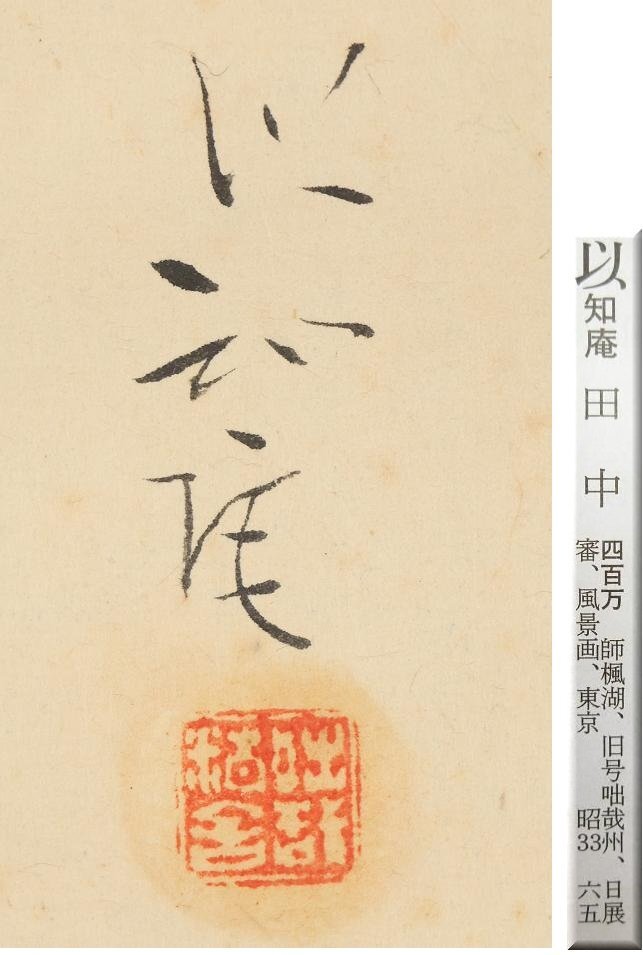 以知庵
以知庵 田中
四百万 師楓湖、旧号咄哉州、日展
審、風景画、東京 昭33 六五